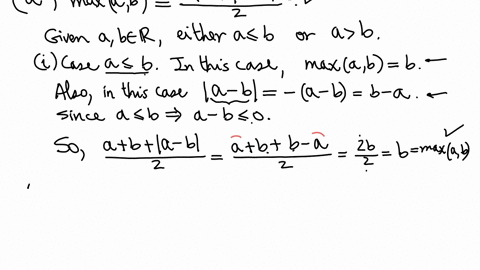 max(a,b) = 2 ✓
Given a,b∈ℝ, either a≤b or a>b.
(i) Case a≤b. In this case, max(a,b)=b. ←
Also, in this case |a-b| = -(a-b) = b-a. ←
since a≤b ⇒ a-b≤0.
So, a+b+|a-b|/2 = a+b+b-a/2 = 2b/2 = b = max(a,b) ✓